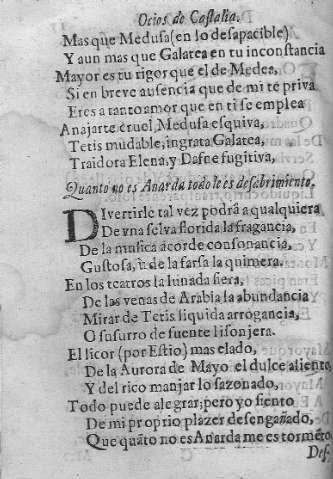 Ocios de Castalia.
Mas que Medusa (en lo desapacible)
Y aun mas que Galatea en tu inconstancia
Mayor es tu rigor que el de Medea,
Si en breve ausencia que de mi te priva
Eres a tanto amor que en ti se emplea
Anajarte cruel, Medusa esquiva,
Tetis mudable, ingrata Galatea,
Traidora Elena, y Dafne fugitiva,
Quanto no es Anarda todo le es desabrimiento.
Divertirle tal vez podrâ a qualquiera
De vna selva florida la fragancia,
De la musica acorde consonancia,
Gustosa, ù de la farsa la quimera.
En los teatros la lunada fiera,
De las venas de Arabia la abundancia
Mirar de Tetis liquida arrogancia,
O susurro de fuente lisonjera.
El licor (por Estio) mas elado,
De la Aurora de Mayo el dulce aliento,
Y del rico manjar lo sazonado,
Todo puede alegrar; pero yo siento
De mi proprio plazer desengañado,
Que quãto no es Anarda me es tormẽto.
Def-